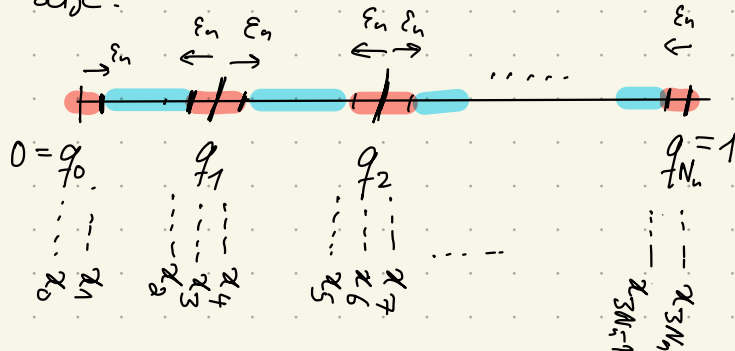 εₙ εₙ εₙ εₙ εₙ εₙ
.....
0 = q₀ q₁ q₂ q_{Nₙ} = 1
x₀ x₁ x₂ x₃ x₄ x₅ x₆ x₇ ..... x_{3Nₙ-1} x_{3Nₙ}